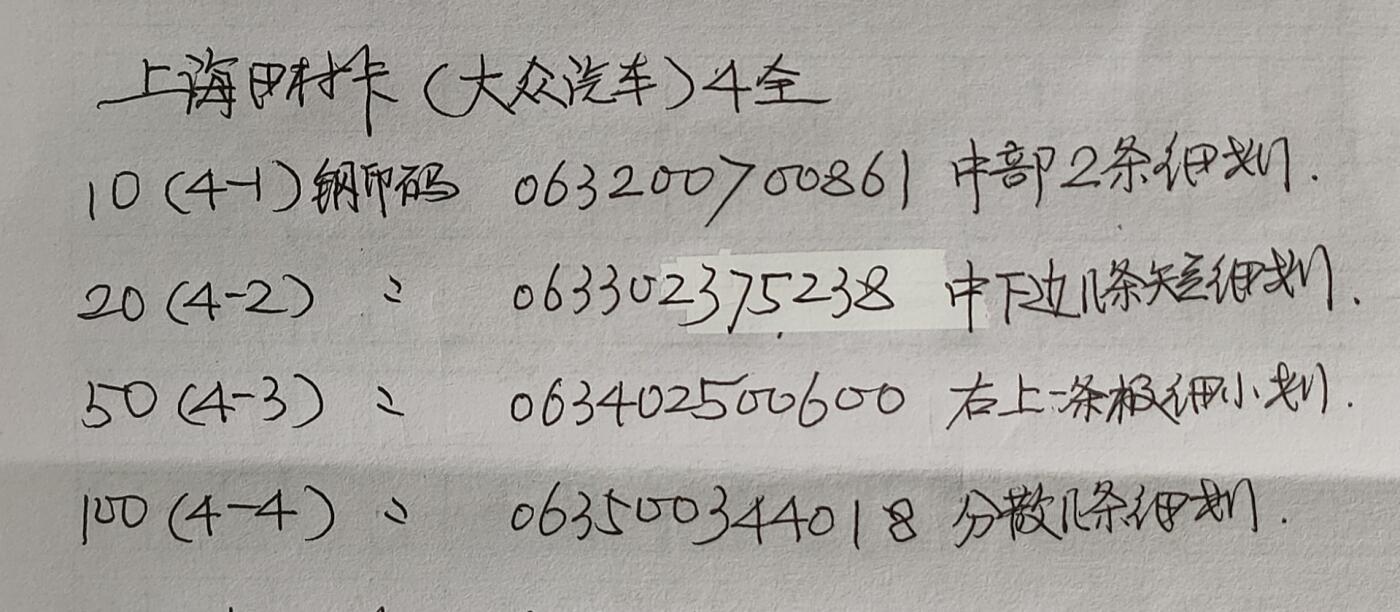 上海田村卡（大众汽车）4全
10（4-1）钢印码 063200700861 中部2条细划.
20（4-2） 〃 063302375238 中下边几条短细划.
50（4-3） 〃 063402500600 右上一条极细小划.
100（4-4） 〃 063500344018 分散几条细划.